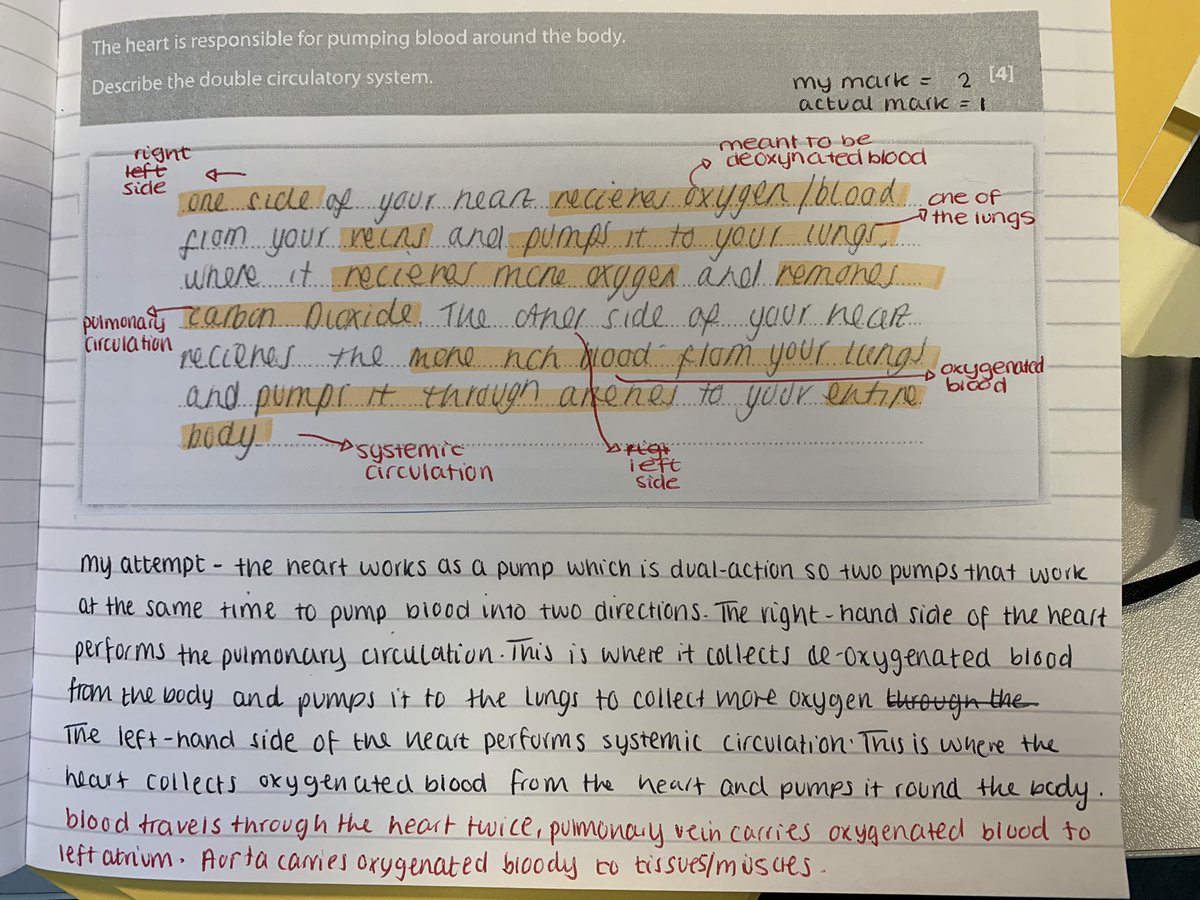 The heart is responsible for pumping blood around the body.
Describe the double circulatory system.
[4]
my mark = 2
actual mark = 1
right
left
side
meant to be
deoxynated blood
one side of your heart recieves oxygen/blood
one of
the lungs
from your veins and pumps it to your lungs,
where it recieves more oxygen and removes
carbon Dioxide. The other side of your heart
pulmonary
circulation
recieves the more rich blood from your lungs
oxygenated
blood
and pumps it through arteries to your entire
body
systemic
circulation
right
left
side
my attempt - the heart works as a pump which is dual-action so two pumps that work
at the same time to pump blood into two directions. The right-hand side of the heart
performs the pulmonary circulation. This is where it collects de-oxygenated blood
from the body and pumps it to the lungs to collect more oxygen through the
The left-hand side of the heart performs systemic circulation. This is where the
heart collects oxygenated blood from the heart and pumps it round the body.
blood travels through the heart twice, pulmonary vein carries oxygenated blood to
left atrium. Aorta carries oxygenated bloody to tissues/muscles.